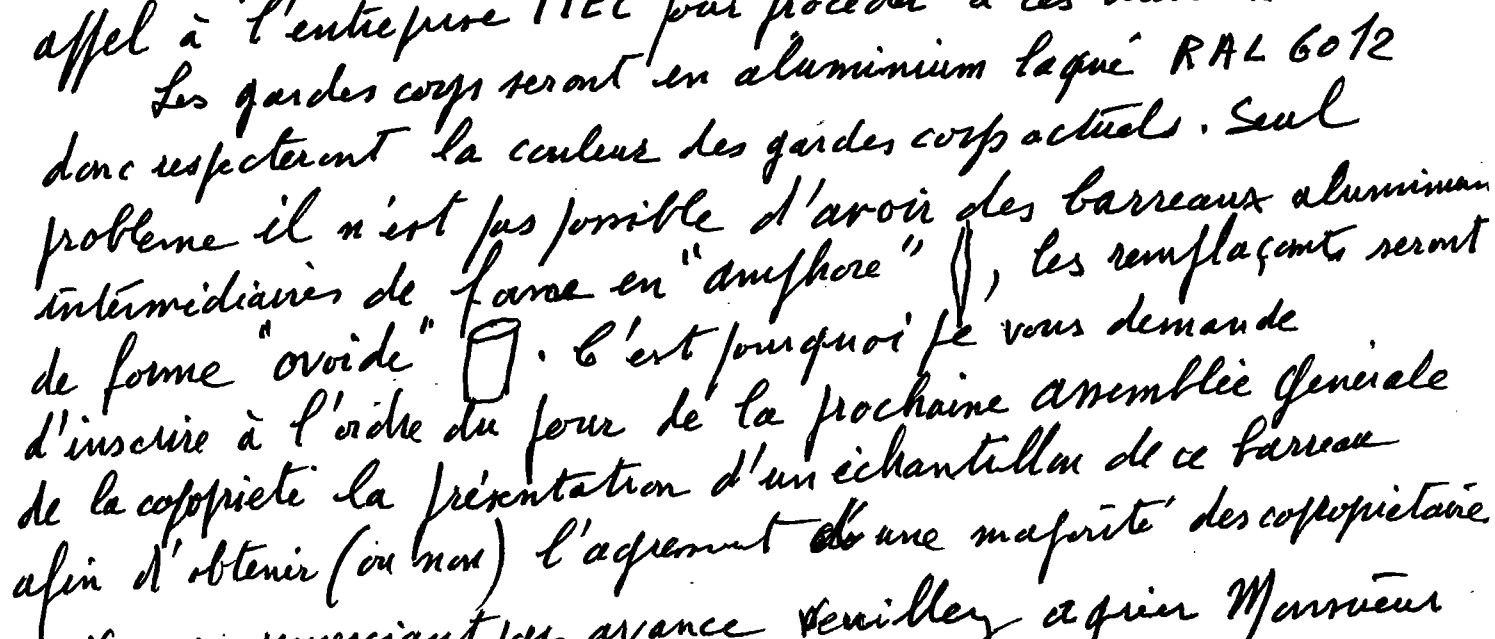 appel à l'entreprise pour procéder à ces
Les gardes corps seront en aluminium laqué RAL 6012
donc respecteront la couleur des gardes corps actuels. Seul
problème il n'est pas possible d'avoir des barreaux aluminium
intérmédiaires de forme en "amphore" , les remplaçants seront
de forme "ovoïde" . C'est pourquoi je vous demande
d'inscrire à l'ordre du jour de la prochaine assemblée générale
de la copropriété la présentation d'un échantillon de ce barreau
afin d'obtenir (ou non) l'agrement d'une majorité des copropiétaire
remerciant par avance veuillez agréer Monsieur